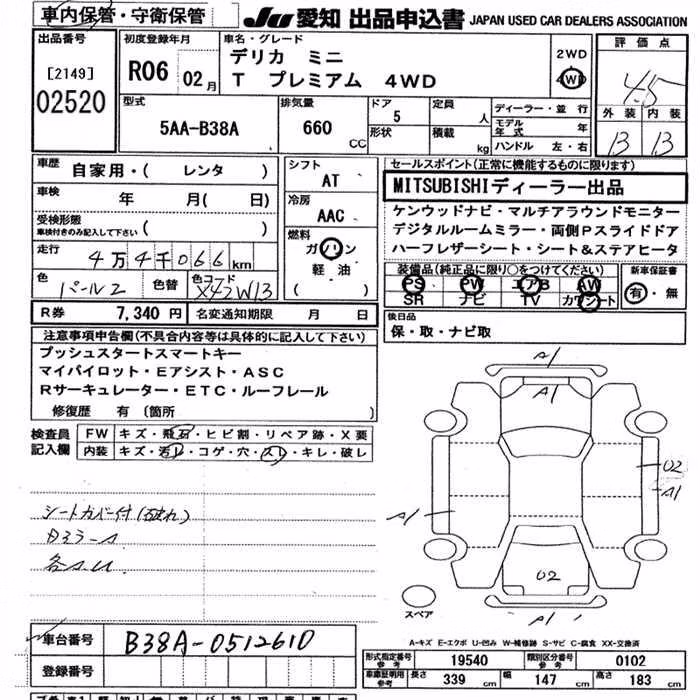 車内保管・守衛保管
JU 愛知 出品申込書 JAPAN USED CAR DEALERS ASSOCIATION
出品番号
[2149]
02520
初度登録年月
R06 02月
車名・グレード
デリカ ミニ
T プレミアム 4WD
2WD
4WD
評価点
4.5
外装 内装
13 13
型式
5AA-B38A
排気量
660 CC
ドア
5
形状
定員
人
積載
kg
ディーラー・並行
モデル年式 年
ハンドル 左・右
車歴
自家用・( レンタ )
車検
年 月( 日)
受検形態
車検付きのみ記入して下さい ( )
走行
4万4千066km
色
パール2
色替
色コード
X42W13
シフト
AT
冷房
AAC
燃料
ガソリン
軽油
( )
R券 7,340円 名変通知期限 月 日
セールスポイント(正常に機能するものに限ります)
MITSUBISHIディーラー出品
ケンウッドナビ・マルチアラウンドモニター
デジタルルームミラー・両側Pスライドドア
ハーフレザーシート・シート&ステアヒータ
装備品(純正品に限り○をつけてください)
PS PW エアB AW
SR ナビ TV カワシート
新車保証書
有・無
後日品
保・取・ナビ取
注意事項申告欄(不具合内容等は具体的に記入して下さい)
プッシュスタートスマートキー
マイパイロット・Eアシスト・ASC
Rサーキュレーター・ETC・ルーフレール
修復歴 有 〔箇所 〕
検査員記入欄
FW キズ・飛石・ヒビ割・リペア跡・X要
内装 キズ・汚レ・コゲ・穴・スレ・キレ・破レ
シートカバー付(破れ)
A1
A1
02
A1
A1
02
A1
スペア
A-キズ E-エクボ U-凹み W-補修跡 S-サビ C-腐食 XX-交換済
車台番号 B38A-0512610
登録番号
形式指定番号 参考 19540 類別区分番号 参考 0102
車庫証明用 参考 長さ 339 cm 幅 147 cm 高さ 183 cm